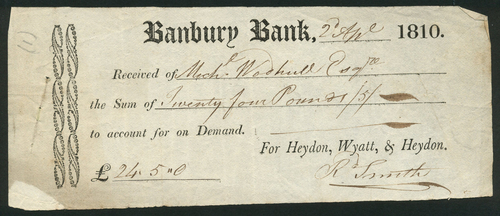 (1)
Banbury Bank, 2d Apl 1810.
Received of Michl. Wodhull Esqre
the Sum of Twenty four Pounds /5/
to account for on Demand.
For Heydon, Wyatt, & Heydon.
£ 24 . 5 . 0 Rd Smith